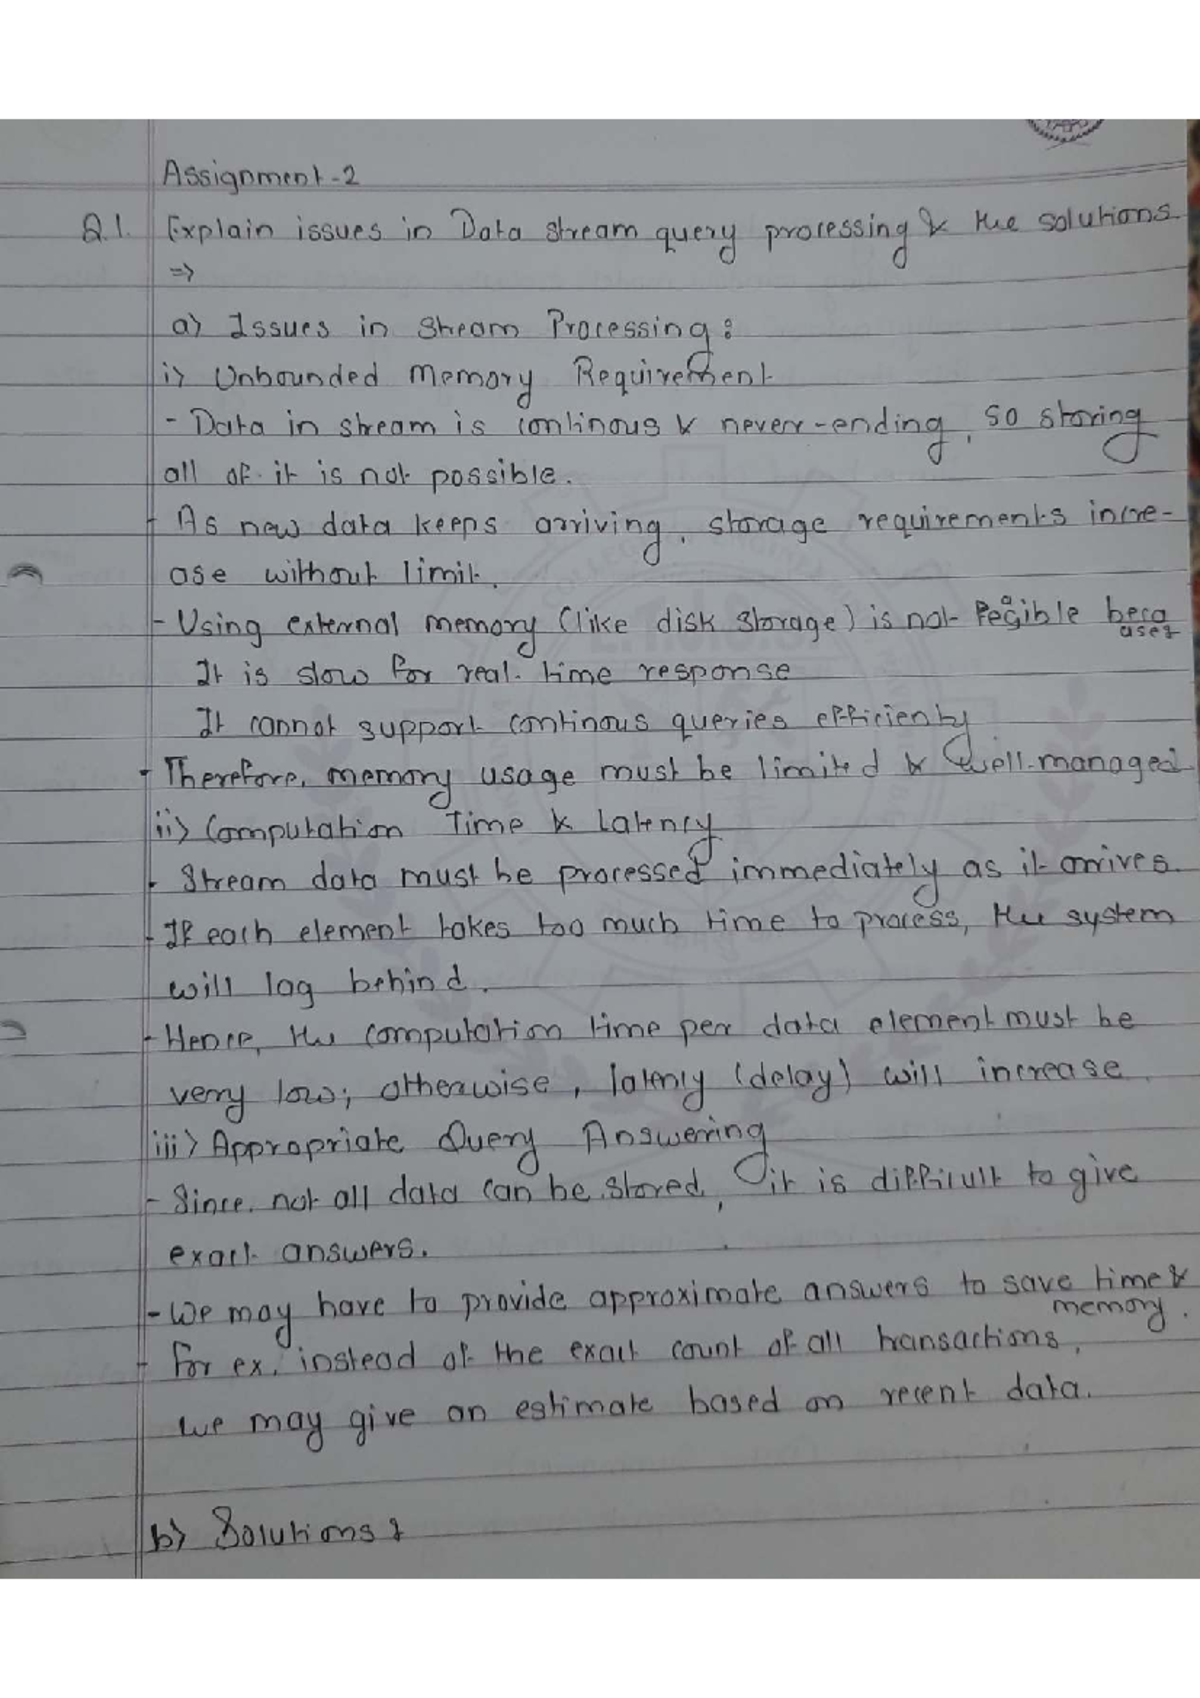 Assignment-2
Q.1. Explain issues in Data stream query processing & the solutions.
=>
a) Issues in Stream Processing:
i) Unbounded Memory Requirement
- Data in stream is continous & neverr-ending, so storing
all of it is not possible.
- As new data keeps arriving, storage requirements incre-
ase without limit.
- Using external memory (like disk storage) is not feasible beca
use:
It is slow for real-time response
It cannot support continous queries efficienty
- Therefore, memory usage must be limited & well-managed
ii) Computation Time & Latency
- Stream data must be processed immediately as it arrives.
- If each element takes too much time to process, the system
will lag behind.
- Hence, the computation time per data element must be
very low; otherwise, latency (delay) will increase.
iii) Appropriate Query Answering
- Since, not all data can be stored, it is difficult to give
exact answers.
- We may have to provide approximate answers to save time &
memory.
- For ex. instead of the exact count of all transactions,
we may give an estimate based on recent data.
b) Solutions: